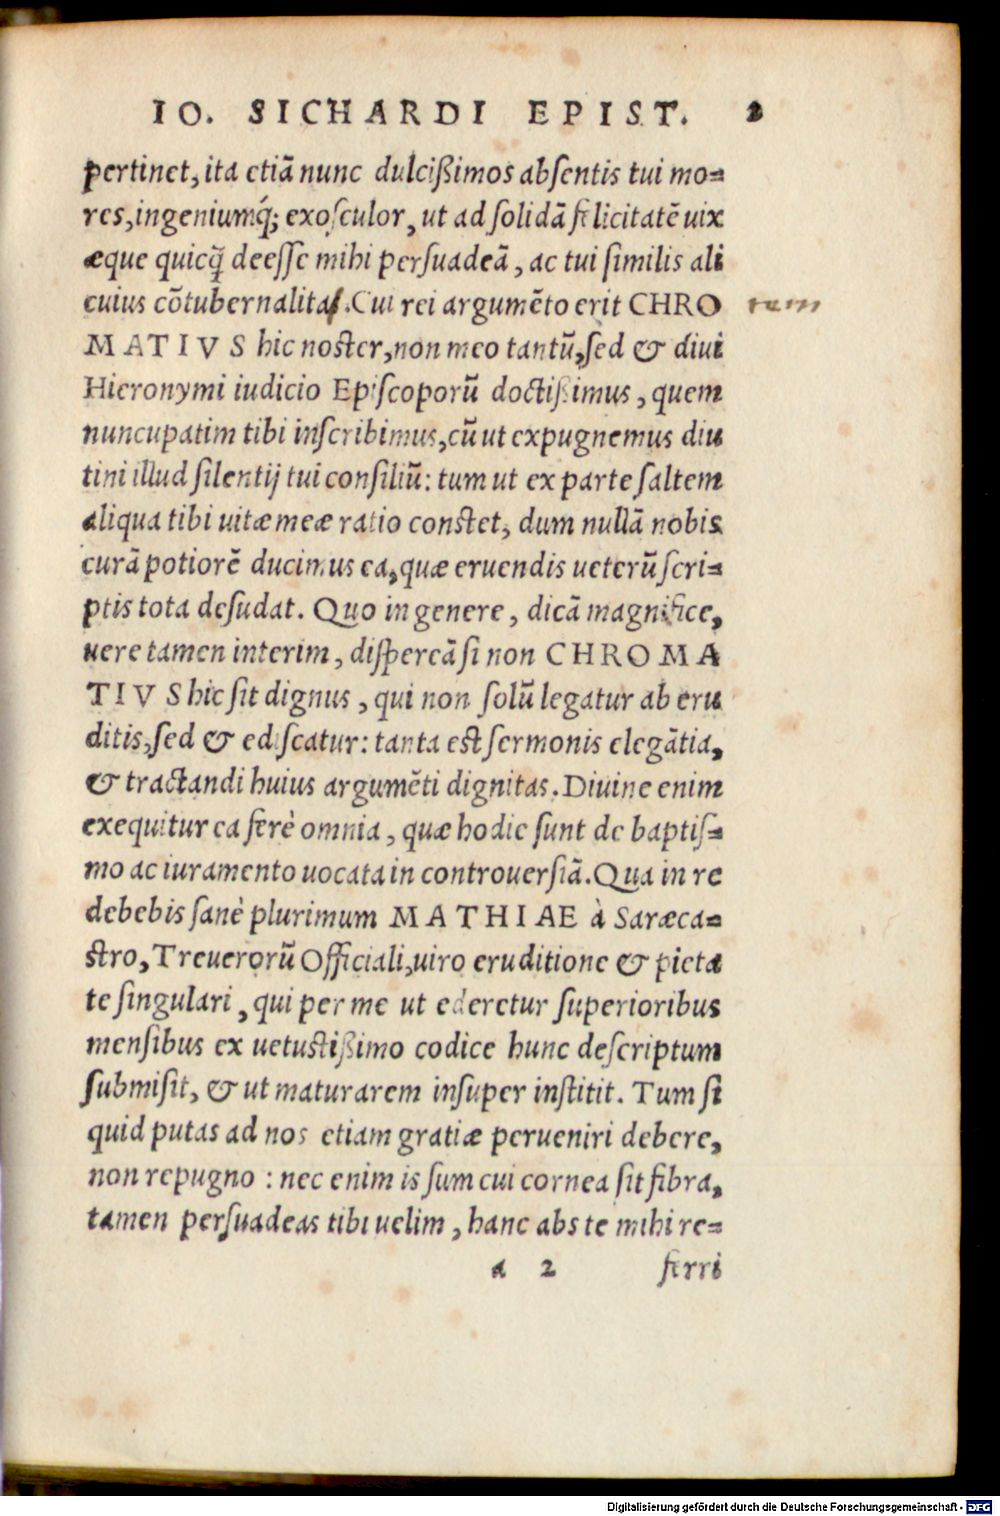 IO. SICHARDI EPIST. 2
pertinet, ita etiā nunc dulcißimos absentis tui mo=
res, ingeniumq́; exosculor, ut ad solidā felicitatē uix
æque quicq̃ deesse mihi persuadeā, ac tui similis ali
cuius cōtubernalitas. Cui rei argumēto erit CHRO
tem
MATIVS hic noster, non meo tantū, sed & diui
Hieronymi iudicio Episcoporū doctißimus, quem
nuncupatim tibi inscribimus, cū ut expugnemus diu
tini illud silentij tui consiliū: tum ut ex parte saltem
aliqua tibi uitæ meæ ratio constet, dum nullā nobis
curā potiorē ducimus ea, quæ eruendis ueterū scri=
ptis tota desudat. Quo in genere, dicā magnifice,
uere tamen interim, dispereā si non CHROMA
TIVS hic sit dignus, qui non solū legatur ab eru
ditis, sed & ediscatur: tanta est sermonis elegātia,
& tractandi huius argumēti dignitas. Diuine enim
exequitur ea ferè omnia, quæ hodie sunt de baptis=
mo ac iuramento uocata in controuersiā. Qua in re
debebis sanè plurimum MATHIAE à Saræca=
stro, Treuerorū Officiali, uiro eruditione & pieta
te singulari, qui per me ut ederetur superioribus
mensibus ex uetustißimo codice hunc descriptum
submisit, & ut maturarem insuper institit. Tum si
quid putas ad nos etiam gratiæ perueniri debere,
non repugno: nec enim is sum cui cornea sit fibra,
tamen persuadeas tibi uelim, hanc abs te mihi re=
a 2 ferri
Digitalisierung gefördert durch die Deutsche Forschungsgemeinschaft - DFG